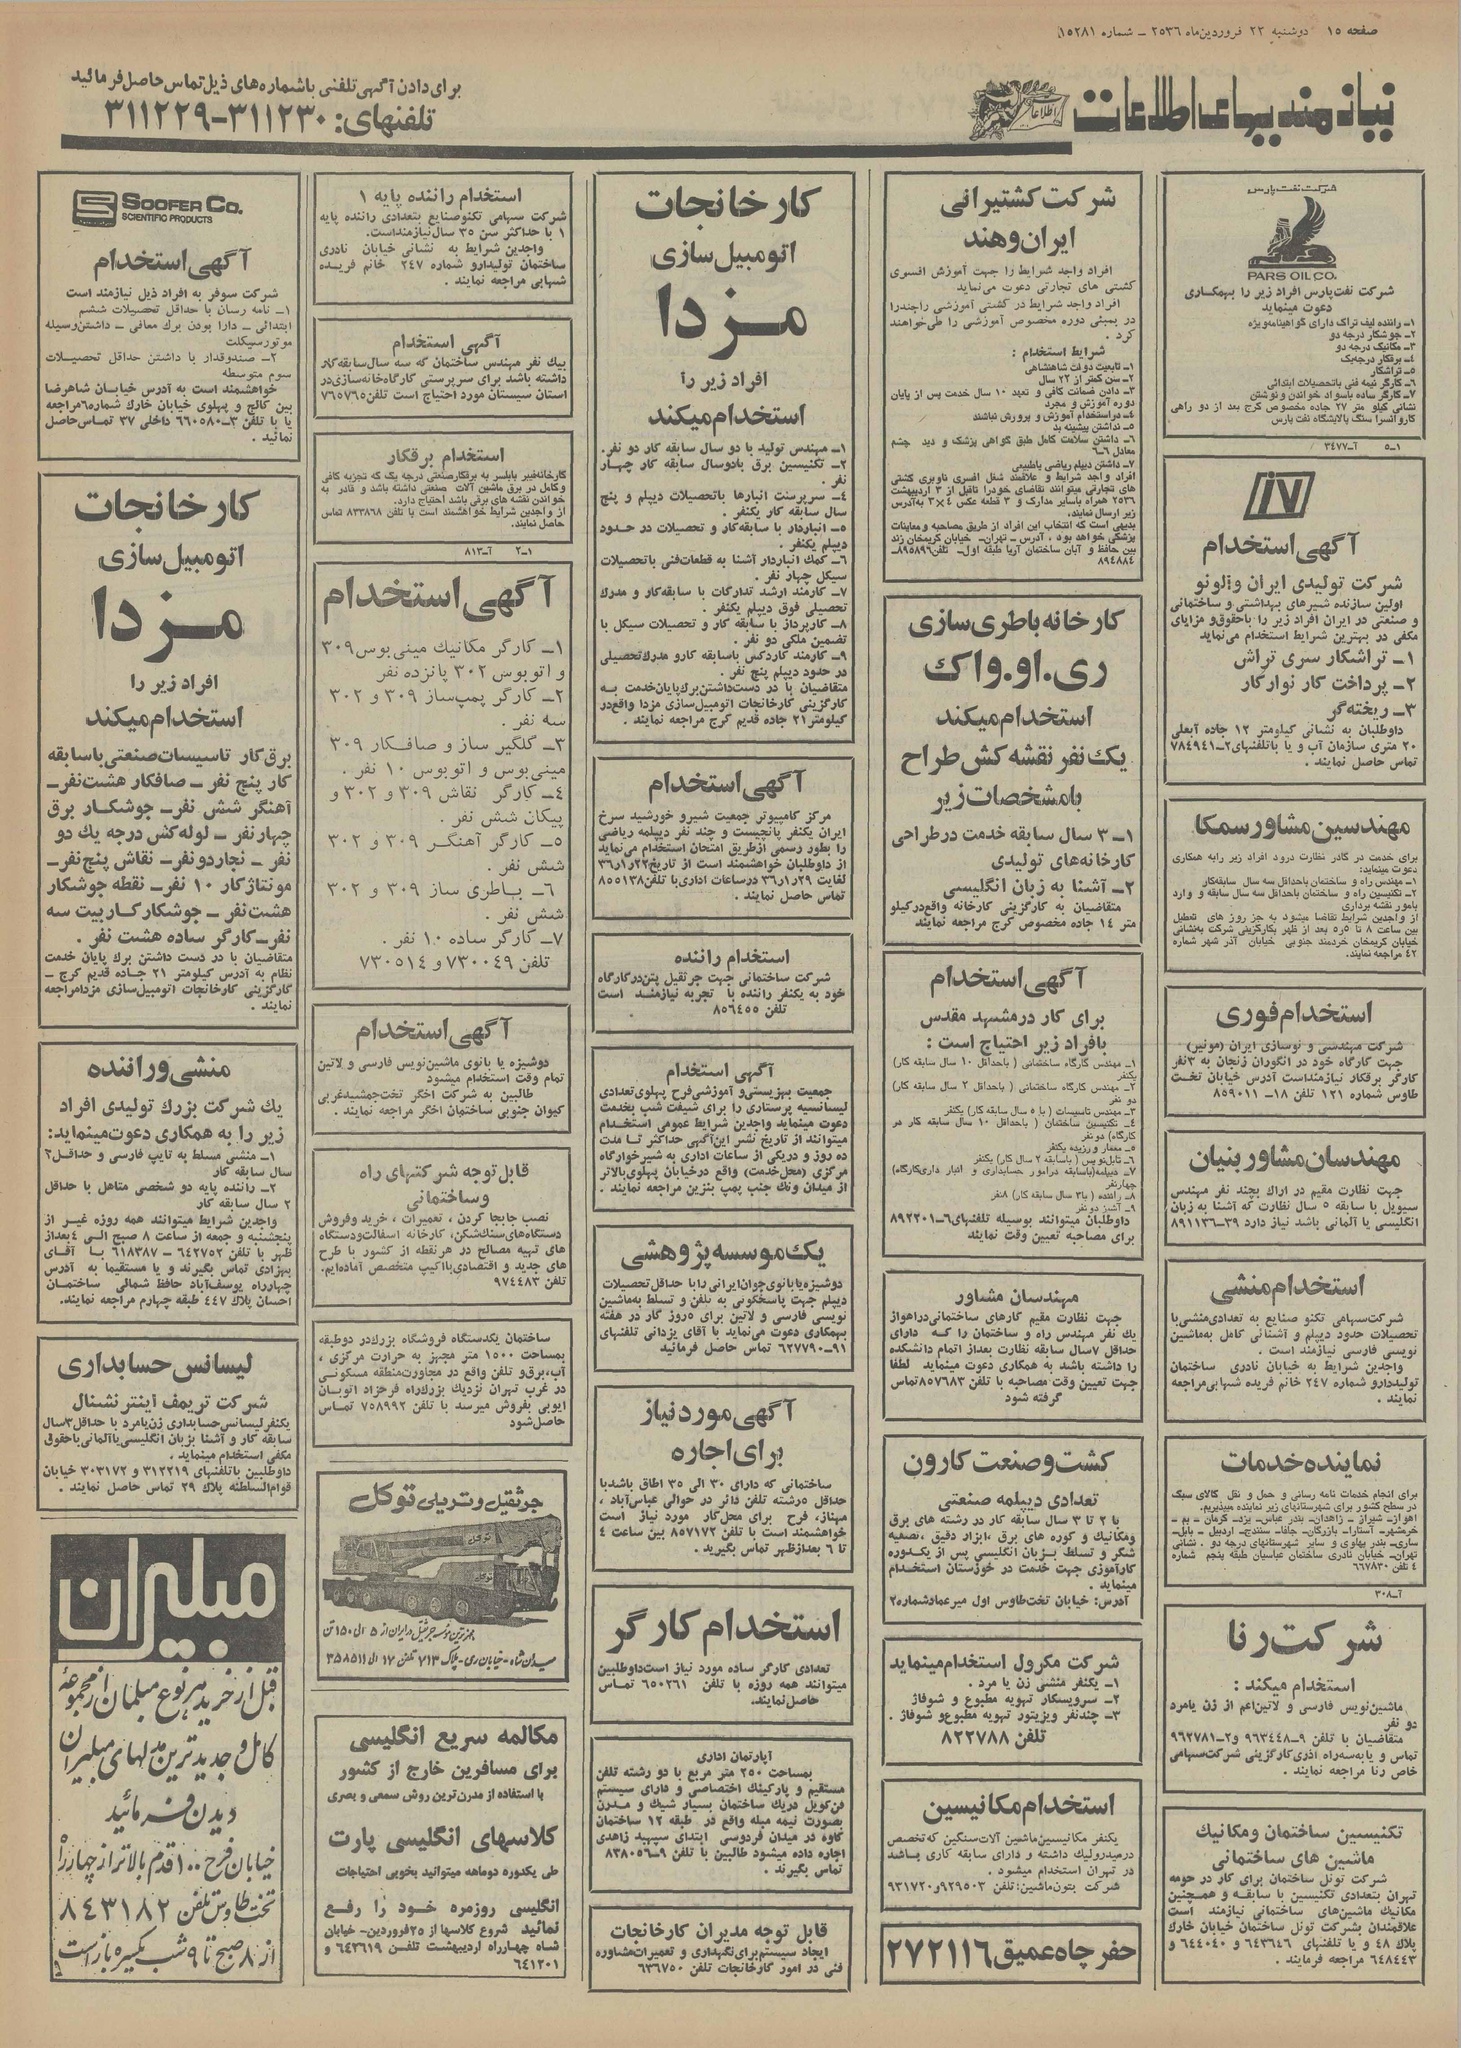 صفحه ۱۵ دوشنبه ۲۲ فروردین‌ماه ۲۵۳۶ – شماره ۱۵۲۸۱
نیازمندیهای اطلاعات
برای دادن آگهی تلفنی باشماره‌های ذیل تماس حاصل فرمائید
تلفنهای: ۳۱۱۲۳۰-۳۱۱۲۲۹
شرکت نفت پارس
PARS OIL CO.
شرکت نفت پارس افراد زیر را بهمکاری
دعوت مینماید
۱– راننده لیف تراک دارای گواهینامه ویژه
۲– جوشکار درجه دو
۳– مکانیک درجه دو
۴– برقکار درجه‌یک
۵– تراشکار
۶– کارگر نیمه فنی باتحصیلات ابتدائی
۷– کارگر ساده باسواد خواندن و نوشتن
نشانی کیلو متر ۲۷ جاده مخصوص کرج بعد از دو راهی
کاروانسرا سنگ پالایشگاه نفت پارس
۱–۵ آ–۳۴۷۷
آگهی استخدام
شرکت تولیدی ایران والونو
اولین سازنده شیرهای بهداشتی و ساختمانی
و صنعتی در ایران افراد زیر را باحقوق و مزایای
مکفی در بهترین شرایط استخدام می‌نماید
۱– تراشکار سری تراش
۲– پرداخت کار نوارکار
۳– ریخته‌گر
داوطلبان به نشانی کیلومتر ۱۲ جاده آبعلی
۲۰ متری سازمان آب و یا باتلفنهای ۲–۷۸۴۹۴۱
تماس حاصل نمایند .
مهندسین مشاور سمکا
برای خدمت در کادر نظارت درود افراد زیر رابه همکاری
دعوت مینماید:
۱– مهندس راه و ساختمان باحداقل سه سال سابقه‌کار
۲– تکنیسین راه و ساختمان باحداقل سه سال سابقه و وارد
بامور نقشه برداری
از واجدین شرایط تقاضا میشود به جز روز های تعطیل
بین ساعت ۸ تا ۵ره بعد از ظهر بکارگزینی شرکت به‌نشانی
خیابان کریمخان خردمند جنوبی خیابان آذر شهر شماره
۴۲ مراجعه نمایند.
استخدام فوری
شرکت مهندسی و نوسازی ایران (مونیر)
جهت کارگاه خود در انگوران زنجان به ۳نفر
کارگر برقکار نیازمنداست آدرس خیابان تخت
طاوس شماره ۱۲۱ تلفن ۱۸–۸۵۹۰۱۱
مهندسان مشاور بنیان
جهت نظارت مقیم در اراک بچند نفر مهندس
سیویل با سابقه ۵ سال نظارت که آشنا به زبان
انگلیسی یا آلمانی باشد نیاز دارد ۳۹–۸۹۱۱۳۶
استخدام منشی
شرکت‌سهامی تکنو صنایع به تعدادی منشی‌با
تحصیلات حدود دیپلم و آشنائی کامل به‌ماشین
نویسی فارسی نیازمند است .
واجدین شرایط به خیابان نادری ساختمان
تولیددارو شماره ۲۴۷ خانم فریده شهابی مراجعه
نمایند .
نماینده خدمات
برای انجام خدمات نامه رسانی و حمل و نقل کالای سبک
در سطح کشور برای شهرستانهای زیر نماینده میپذیریم.
اهواز– شیراز – زاهدان– بندر عباس– یزد– کرمان – بم –
خرمشهر– آستارا– بازرگان– جلفا– سنندج– اردبیل – بابل–
ساری– بندر پهلوی و سایر شهرستانهای درجه دو . نشانی
تهران– خیابان نادری ساختمان عباسیان طبقه پنجم شماره
۴ تلفن ۶۶۷۸۳۰
آ–۳۰۸
شرکت رنا
استخدام میکند :
ماشین‌نویس فارسی و لاتین‌اعم از زن یامرد
دو نفر
متقاضیان با تلفن ۹–۹۶۳۴۴۸ و ۲–۹۶۲۷۸۱
تماس و یابه‌سه‌راه آذری کارگزینی شرکت‌سهامی
خاص رنا مراجعه نمایند .
تکنیسین ساختمان و مکانیک
ماشین های ساختمانی
شرکت تونل ساختمان برای کار در حومه
تهران بتعدادی تکنیسین با سابقه و همچنین
مکانیک ماشین‌های ساختمانی نیازمند است
علاقمندان بشرکت تونل ساختمان خیابان خارک
پلاک ۴۸ و یا تلفنهای ۶۴۳۶۴۶ و ۶۴۴۰۴۰ و
۶۴۸۴۴۳ مراجعه فرمایند .
شرکت کشتیرانی
ایران و هند
افراد واجد شرایط را جهت آموزش افسری
کشتی های تجارتی دعوت می‌نماید
افراد واجد شرایط در کشتی آموزشی راجندرا
در بمبئی دوره مخصوص آموزشی را طی‌خواهند
کرد .
شرایط استخدام :
۱– تابعیت دولت شاهنشاهی
۲– سن کمتر از ۲۲ سال
۳– دادن ضمانت کافی و تعهد ۱۰ سال خدمت پس از پایان
دوره آموزش و مجرد
۴– دراستخدام آموزش و پرورش نباشند
۵– نداشتن پیشینه بد
۶– داشتن سلامت کامل طبق گواهی پزشک و دید چشم
معادل ۶–۶
۷– داشتن دیپلم ریاضی یاطبیعی
افراد واجد شرایط و علاقمند شغل افسری ناوبری کشتی
های تجارتی میتوانند تقاضای خودرا تاقبل از ۳ اردیبهشت
۲۵۳۶ همراه باسایر مدارک و ۳ قطعه عکس ۴×۳ به‌آدرس
زیر ارسال نمایند.
بدیهی است که انتخاب این افراد از طریق مصاحبه و معاینات
پزشکی خواهد بود . آدرس – تهران– خیابان کریمخان زند
بین حافظ و آبان ساختمان آریا طبقه اول– تلفن ۸۹۵۸۹۶–
۸۹۴۸۸۴
کارخانه باطری سازی
ری.او.واک
استخدام میکند
یک نفر نقشه کش طراح
بامشخصات زیر
۱– ۳ سال سابقه خدمت درطراحی
کارخانه‌های تولیدی
۲– آشنا به زبان انگلیسی
متقاضیان به کارگزینی کارخانه واقع‌درکیلو
متر ۱۴ جاده مخصوص کرج مراجعه نمایند
آگهی استخدام
برای کار در مشهد مقدس
بافراد زیر احتیاج است :
۱– مهندس کارگاه ساختمانی ( باحداقل ۱۰ سال سابقه کار)
یکنفر
۲– مهندس کارگاه ساختمانی ( باحداقل ۲ سال سابقه کار)
دو نفر
۳– مهندس تاسیسات ( با ۵ سال سابقه کار) یکنفر
۴– تکنیسین ساختمان ( باحداقل ۱۰ سال سابقه کار در
کارگاه) دو نفر
۵– معمار ورزیده یکنفر
۶– تابل‌نویس ( باسابقه ۲ سال کار) یکنفر
۷– دیپلمه (باسابقه درامور حسابداری و انبار داری‌کارگاه)
چهارنفر
۸– راننده ( با ۳ سال سابقه کار) ۸نفر
۹– آشپز دو نفر
داوطلبان میتوانند بوسیله تلفنهای ۶–۸۹۲۲۰۱
برای مصاحبه تعیین وقت نمایند
مهندسان مشاور
جهت نظارت مقیم کارهای ساختمانی دراهواز
یک نفر مهندس راه و ساختمان را که دارای
حداقل ۷سال سابقه نظارت بعداز اتمام دانشکده
را داشته باشد به همکاری دعوت مینماید لطفا
جهت تعیین وقت مصاحبه با تلفن ۸۵۷۶۸۳تماس
گرفته شود
کشت و صنعت کارون
تعدادی دیپلمه صنعتی
با ۲ تا ۳ سال سابقه کار در رشته های برق
ومکانیک و کوره های برق ،ابزار دقیق ،تصفیه
شکر و تسلط بزبان انگلیسی پس از یکدوره
کارآموزی جهت خدمت در خوزستان استخدام
مینماید .
آدرس: خیابان تخت‌طاوس اول میرعماد شماره۲
شرکت مکرول استخدام مینماید
۱– یکنفر منشی زن یا مرد .
۲– سرویسکار تهویه مطبوع و شوفاژ
۳– چندنفر ویزیتور تهویه مطبوع و شوفاژ .
تلفن ۸۲۲۷۸۸
استخدام مکانیسین
یکنفر مکانیسین‌ماشین آلات‌سنگین که‌تخصص
درهیدرولیک داشته و دارای سابقه کاری باشد
در تهران استخدام میشود .
شرکت بتون‌ماشین: تلفن ۹۲۹۵۰۳و۹۳۱۷۲۰
حفر چاه عمیق ۲۷۲۱۱۶
کارخانجات
اتومبیل سازی
مزدا
افراد زیر را
استخدام میکند
۱– مهندس تولید با دو سال سابقه کار دو نفر.
۲– تکنیسین برق بادوسال سابقه کار چهار
نفر .
۴– سرپرست انبارها باتحصیلات دیپلم و پنج
سال سابقه کار یکنفر .
۵– انباردار با سابقه‌کار و تحصیلات در حدود
دیپلم یکنفر .
۶– کمک انباردار آشنا به قطعات‌فنی باتحصیلات
سیکل چهار نفر .
۷– کارمند ارشد تدارکات با سابقه‌کار و مدرک
تحصیلی فوق دیپلم یکنفر .
۸– کارپرداز با سابقه کار و تحصیلات سیکل با
تضمین ملکی دو نفر .
۹– کارمند کاردکس باسابقه کارو مدرک‌تحصیلی
در حدود دیپلم پنج نفر .
متقاضیان با در دست‌داشتن‌برک‌پایان‌خدمت به
کارگزینی کارخانجات اتومبیل‌سازی مزدا واقع‌در
کیلومتر ۲۱ جاده قدیم کرج مراجعه نمایند .
آگهی استخدام
مرکز کامپیوتر جمعیت شیرو خورشید سرخ
ایران یکنفر پانچیست و چند نفر دیپلمه ریاضی
را بطور رسمی ازطریق امتحان استخدام می‌نماید
از داوطلبان خواهشمند است از تاریخ ۳۶ر۱ر۲۲
لغایت ۳۶ر۱ر۲۹ درساعات اداری با تلفن ۸۵۵۱۳۸
تماس حاصل نمایند .
استخدام راننده
شرکت ساختمانی جهت جرثقیل پتن‌درکارگاه
خود به یکنفر راننده با تجربه نیازمند است
تلفن ۸۵۶۴۵۵
آگهی استخدام
جمعیت بهزیستی‌و آموزشی‌فرح پهلوی‌تعدادی
لیسانسیه پرستاری را برای شیفت شب بخدمت
دعوت مینماید واجدین شرایط عمومی استخدام
میتوانند از تاریخ نشر این‌آگهی حداکثر تا مدت
ده روز و دریکی از ساعات اداری به شیرخوارگاه
مرکزی (محل‌خدمت) واقع درخیابان پهلوی‌بالاتر
از میدان ونک جنب پمپ بنزین مراجعه نمایند .
یک موسسه پژوهشی
دوشیزه یابانوی‌جوان‌ایرانی رابا حداقل‌تحصیلات
دیپلم جهت پاسخگوئی به تلفن و تسلط به‌ماشین
نویسی فارسی و لاتین برای ۵روز کار در هفته
بهمکاری دعوت می‌نماید با آقای یزدانی تلفنهای
۹۱–۶۲۷۷۹۰ تماس حاصل فرمائید
آگهی مورد نیاز
برای اجاره
ساختمانی که دارای ۳۰ الی ۳۵ اطاق باشدبا
حداقل ۵رشته تلفن دائر در حوالی عباس‌آباد ،
مهناز، فرح برای محل‌کار مورد نیاز است
خواهشمند است با تلفن ۸۵۷۱۷۲ بین ساعت ۴
تا ۶ بعدازظهر تماس بگیرید .
استخدام کارگر
تعدادی کارگر ساده مورد نیاز است‌داوطلبین
میتوانند همه روزه با تلفن ۶۵۰۲۶۱ تماس
حاصل نمایند.
آپارتمان اداری
بمساحت ۲۵۰ متر مربع با دو رشته تلفن
مستقیم و پارکینک اختصاصی و دارای سیستم
فن‌کویل دریک ساختمان بسیار شیک و مدرن
بصورت نیمه مبله واقع در طبقه ۱۲ ساختمان
کاوه در میدان فردوسی ابتدای سپهبد زاهدی
اجاره داده میشود طالبین با تلفن ۹–۸۳۸۰۵۶
تماس بگیرند .
قابل توجه مدیران کارخانجات
ایجاد سیستم‌برای‌نگهداری و تعمیرات‌مشاوره
فنی در امور کارخانجات تلفن ۶۳۶۷۵۰
استخدام راننده پایه ۱
شرکت سهامی تکنوصنایع بتعدادی راننده پایه
۱ با حداکثر سن ۳۵ سال‌نیازمنداست.
واجدین شرایط به نشانی خیابان نادری
ساختمان تولیددارو شماره ۲۴۷ خانم فریده
شهابی مراجعه نمایند .
آگهی استخدام
بیک نفر مهندس ساختمان که سه سال‌سابقه‌کار
داشته باشد برای سرپرستی کارگاه‌خانه‌سازی‌در
استان سیستان مورد احتیاج است تلفن ۷۶۵۷۶۵
استخدام برقکار
کارخانه‌فیبر بابلسر به برقکارصنعتی درجه یک که تجربه کافی
و کامل در برق ماشین آلات صنعتی داشته باشد و قادر به
خواندن نقشه های برقی باشد احتیاج دارد.
از واجدین شرایط خواهشمند است با تلفن ۸۳۳۸۶۸ تماس
حاصل نمایند.
۱–۲ آ–۸۱۳
آگهی استخدام
۱– کارگر مکانیک مینی‌بوس ۳۰۹
و اتوبوس ۳۰۲ پانزده نفر
۲– کارگر پمپ‌ساز ۳۰۹ و ۳۰۲
سه نفر .
۳– گلگیر ساز و صافکار ۳۰۹
مینی‌بوس و اتوبوس ۱۰ نفر .
۴– کارگر نقاش ۳۰۹ و ۳۰۲ و
پیکان شش نفر .
۵– کارگر آهنگر ۳۰۹ و ۳۰۲
شش نفر .
۶– باطری ساز ۳۰۹ و ۳۰۲
شش نفر .
۷– کارگر ساده ۱۰ نفر .
تلفن ۷۳۰۰۴۹ و ۷۳۰۵۱۴
آگهی استخدام
دوشیزه یا بانوی ماشین‌نویس فارسی و لاتین
تمام وقت استخدام میشود
طالبین به شرکت اخگر تخت‌جمشیدغربی
کیوان جنوبی ساختمان اخگر مراجعه نمایند .
قابل توجه شرکتهای راه
و ساختمانی
نصب جابجا کردن ، تعمیرات ، خرید وفروش
دستگاه‌های‌سنک‌شکن، کارخانه اسفالت‌ودستگاه
های تهیه مصالح در هرنقطه از کشور با طرح
های جدید و اقتصادی‌بااکیپ متخصص آماده‌ایم.
تلفن ۹۷۴۴۸۳
ساختمان یکدستگاه فروشگاه بزرک‌در دوطبقه
بمساحت ۱۵۰۰ متر مجهز به حرارت مرکزی ،
آب،برق‌و تلفن واقع در مجاورت‌منطقه مسکونی
در غرب تهران نزدیک بزرک‌راه فرحزاد اتوبان
ایوبی بفروش میرسد با تلفن ۷۵۸۹۹۲ تماس
حاصل‌شود
جرثقیل و تریلی توکل
توکل
توکل
مجهزترین موسسه جرثقیل در ایران از ۵ الی ۱۵۰ تن
میدان شاه–خیابان ری–پلاک ۷۱۳ تلفن ۱۷ الی ۳۵۸۵۱۱
مکالمه سریع انگلیسی
برای مسافرین خارج از کشور
با استفاده از مدرن‌ترین روش سمعی و بصری
کلاسهای انگلیسی پارت
طی یکدوره دوماهه میتوانید بخوبی احتیاجات
انگلیسی روزمره خود را رفع
نمائید شروع کلاسها از ۲۵فروردین– خیابان
شاه چهارراه اردیبهشت تلفن ۶۴۳۶۱۹ و
۶۴۱۲۰۱
SOOFER CO.
SCIENTIFIC PRODUCTS
آگهی استخدام
شرکت سوفر به افراد ذیل نیازمند است
۱– نامه رسان با حداقل تحصیلات ششم
ابتدائی – دارا بودن برک معافی – داشتن‌وسیله
موتورسیکلت
۲– صندوقدار با داشتن حداقل تحصیلات
سوم متوسطه
خواهشمند است به آدرس خیابان شاهرضا
بین کالج و پهلوی خیابان خارک شماره۶مراجعه
یا با تلفن ۳–۶۶۰۵۸۰ داخلی ۳۷ تماس‌حاصل
نمائید .
کارخانجات
اتومبیل سازی
مزدا
افراد زیر را
استخدام میکند
برق‌کار تاسیسات صنعتی باسابقه
کار پنج نفر– صافکار هشت‌نفر–
آهنگر شش نفر– جوشکار برق
چهارنفر– لوله‌کش درجه یک دو
نفر – نجار دونفر– نقاش پنج‌نفر–
مونتاژکار ۱۰ نفر– نقطه جوشکار
هشت‌نفر – جوشکار کاربیت سه
نفر– کارگر ساده هشت نفر .
متقاضیان با در دست داشتن برک پایان خدمت
نظام به آدرس کیلومتر ۲۱ جاده قدیم کرج –
کارگزینی کارخانجات اتومبیل‌سازی مزدامراجعه
نمایند .
منشی و راننده
یک شرکت بزرک تولیدی افراد
زیر را به همکاری دعوت‌مینماید:
۱– منشی مسلط به تایپ فارسی و حداقل ۲
سال سابقه کار
۲– راننده پایه دو شخصی متاهل با حداقل
۲ سال سابقه کار
واجدین شرایط میتوانند همه روزه غیر از
پنجشنبه و جمعه از ساعت ۸ صبح الی ۴بعداز
ظهر با تلفن ۶۴۲۷۵۲ – ۶۱۸۳۸۷ با آقای
بهزادی تماس بگیرند و یا مستقیما به آدرس
چهارراه یوسف‌آباد حافظ شمالی ساختمان
احسان پلاک ۴۴۷ طبقه چهارم مراجعه نمایند.
لیسانس حسابداری
شرکت تریمف اینترنشنال
یکنفر لیسانس‌حسابداری زن‌یامرد با حداقل۳سال
سابقه کار و آشنا بزبان انگلیسی‌یاآلمانی باحقوق
مکفی استخدام مینماید .
داوطلبین باتلفنهای ۳۱۲۲۱۹ و ۳۰۳۱۷۲ خیابان
قوام‌السلطنه پلاک ۲۹ تماس حاصل نمایند .
مبلیران
قبل از خرید هر نوع مبلمان از مجموعهٔ
کامل و جدیدترین مدلهای مبلیران
دیدن فرمائید
خیابان فرح ۱۰۰ قدم بالاتر از چهارراه
تخت طاوس تلفن ۸۴۳۱۸۲
از ۸ صبح تا ۹ شب یکسره باز است